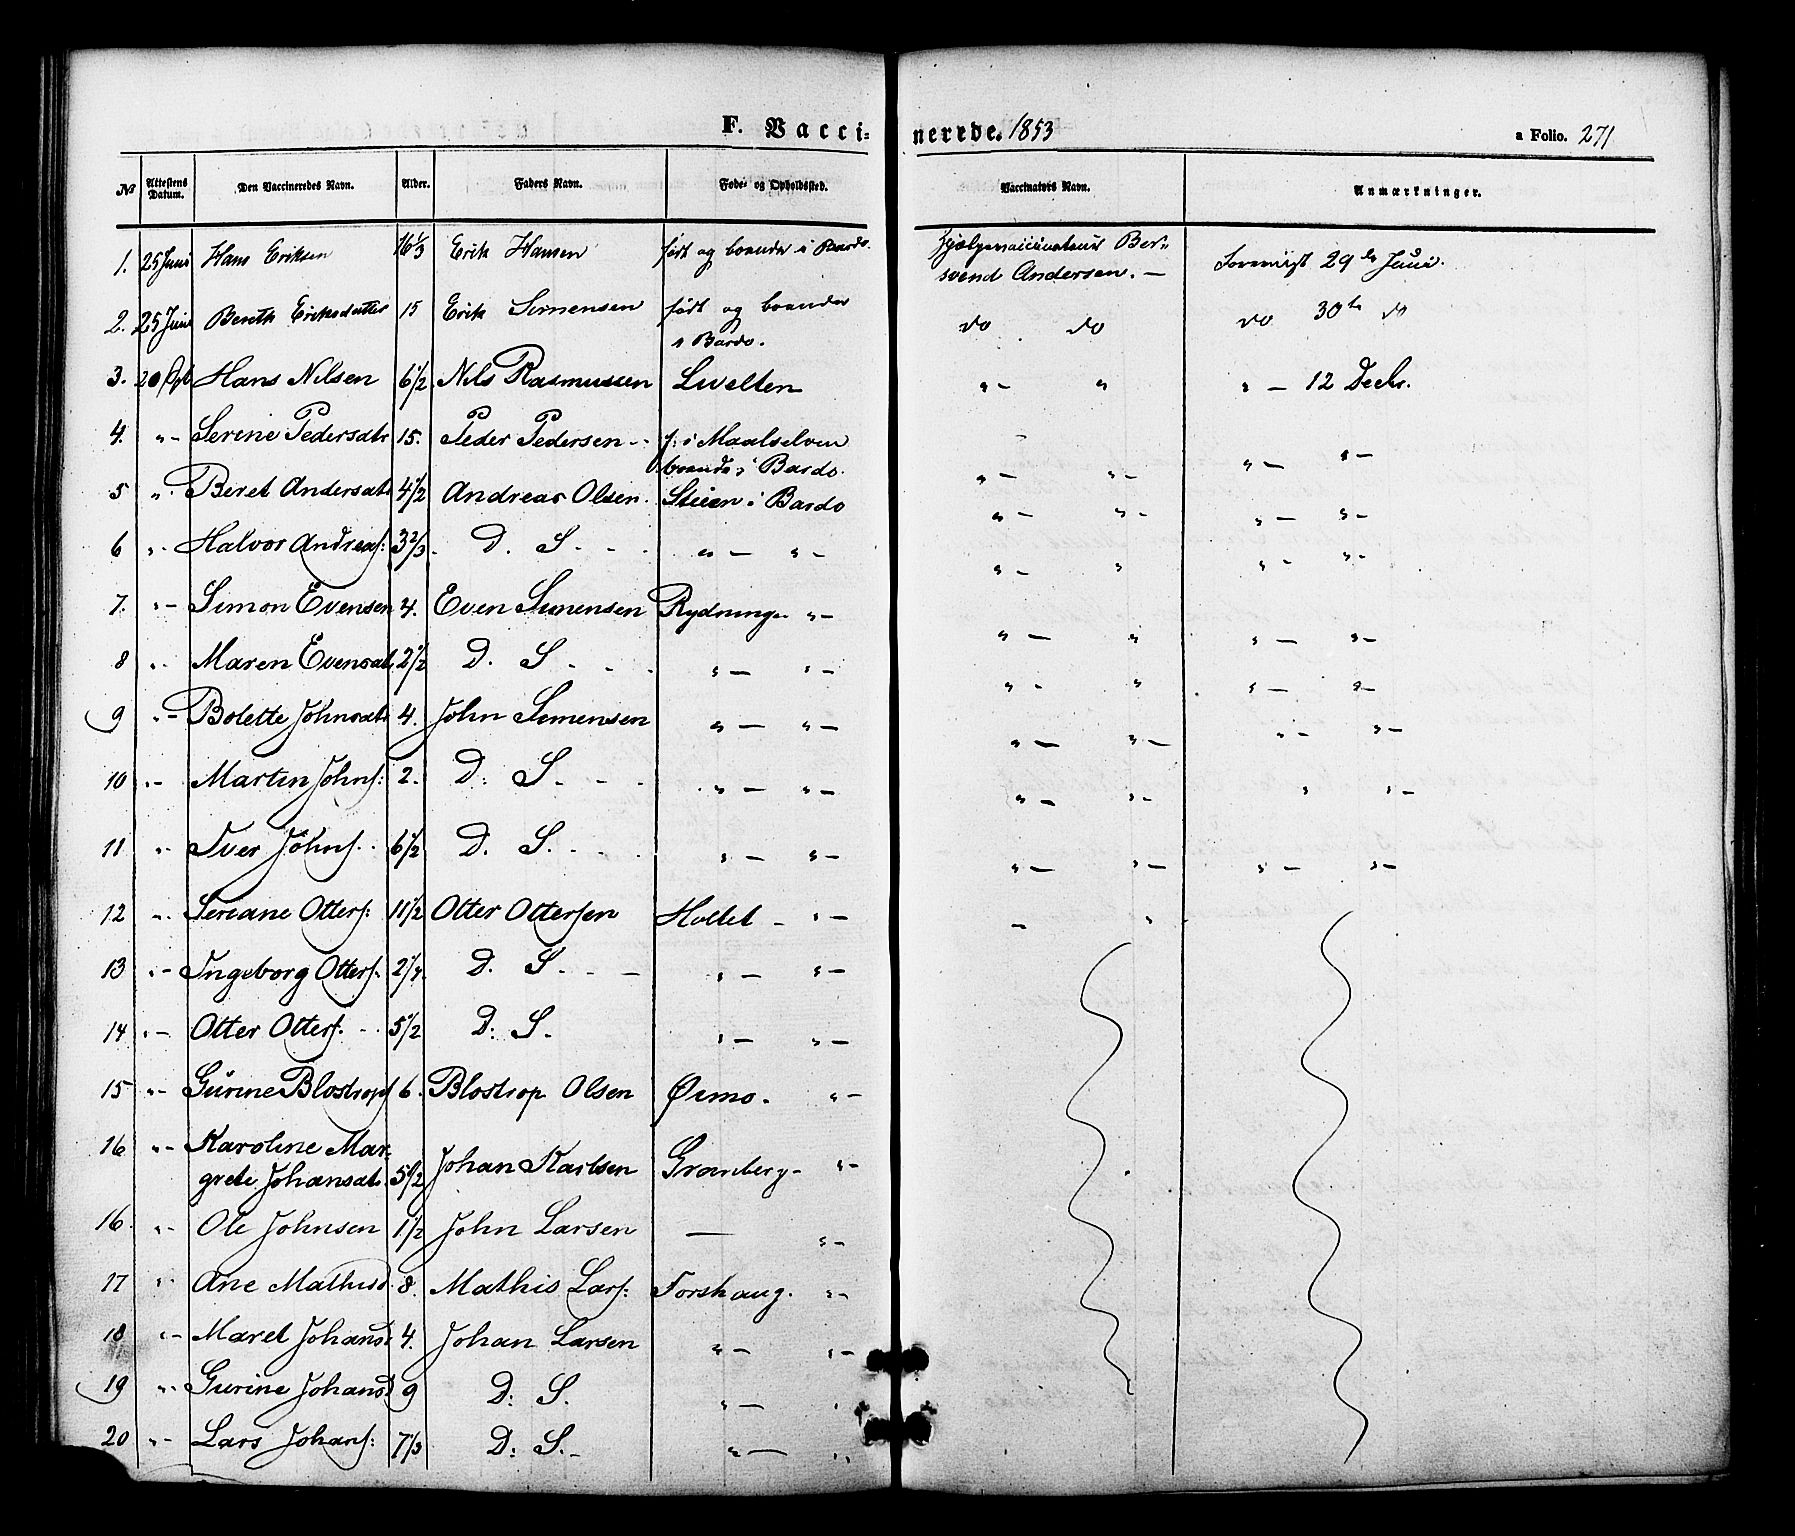 F. Vaccinerede. 1853 a Folio. 271
№ Attestens Datum. Den Vaccineredes Navn. Alder. Faders Navn. Føde- og Opholdssted. Vaccinators Navn. Anmærkninger.
1. 25 Juni Hans Eriksen 16 1/3 Erik Hansen født og boende i Bardo. Hjælpevaccinateur Ber-
svend Andersen. — 29de Juni.
2. 25 Juni Bereth Eriksdatter 15 Erik Simensen født og boende do do do 30te do
i Bardo.
3. 20 Hans Nilsen 6 1/2 Nils Rasmussen " — " " — 12 Decbr.
4. " — Serine Pedersdtr 15. Peder Pedersen - - f: i Maalselven
boende i Bardo. " — " — " — " —
5 " . Beret Andersdt. 4 1/2 Andreas Olsen. Steien i Bardo " — " — " — " —
6 " . Halvor Andreas: 3 2/3. D. S. - - " — " — " — " " — " —
7. " — Simon Evensen 4. Even Simensen Rydninge " — " — " " — " —
8 " . Maren Evensdt. 2 1/2 D. S. - - " — " — " — " " — " —
9 " — Bolette Johnsdt. 4. John Simensen " — " — " — " — " — " —
10 " — Martin Johns: 2. D: S. - - " — " — " — " — " " —
11 " . Iver Johns. 6 1/2 D. S. - - " — " — " — " — " — " —
12 " . Otters: 11 1/2 Otter Ottersen Holtet - " — — "
13 " — Ingeborg Otters. D. S. - - " — " —
14 " — Otter Otters. 5 1/2 D: S. " — " —
15 " — Gurine Blostropd 6. Blostrop Olsen Ørmo. " —
16 " — Karoline Mar-
grete Johansdt. 5 1/2 Johan Karlsen Granberg - " —
16. " . Ole Johnsen 1 1/2 John Larsen — " —
17 " . Ane Mathisd. 8. Mathis Lars: Forshaug. " —
18 " — Maret Johansd 4. Johan Larsen " — " —
19 " . Gurine Johansd 9 D: S. " — "
20 " — Lars Johans: 7 1/3 D: S. - " — "